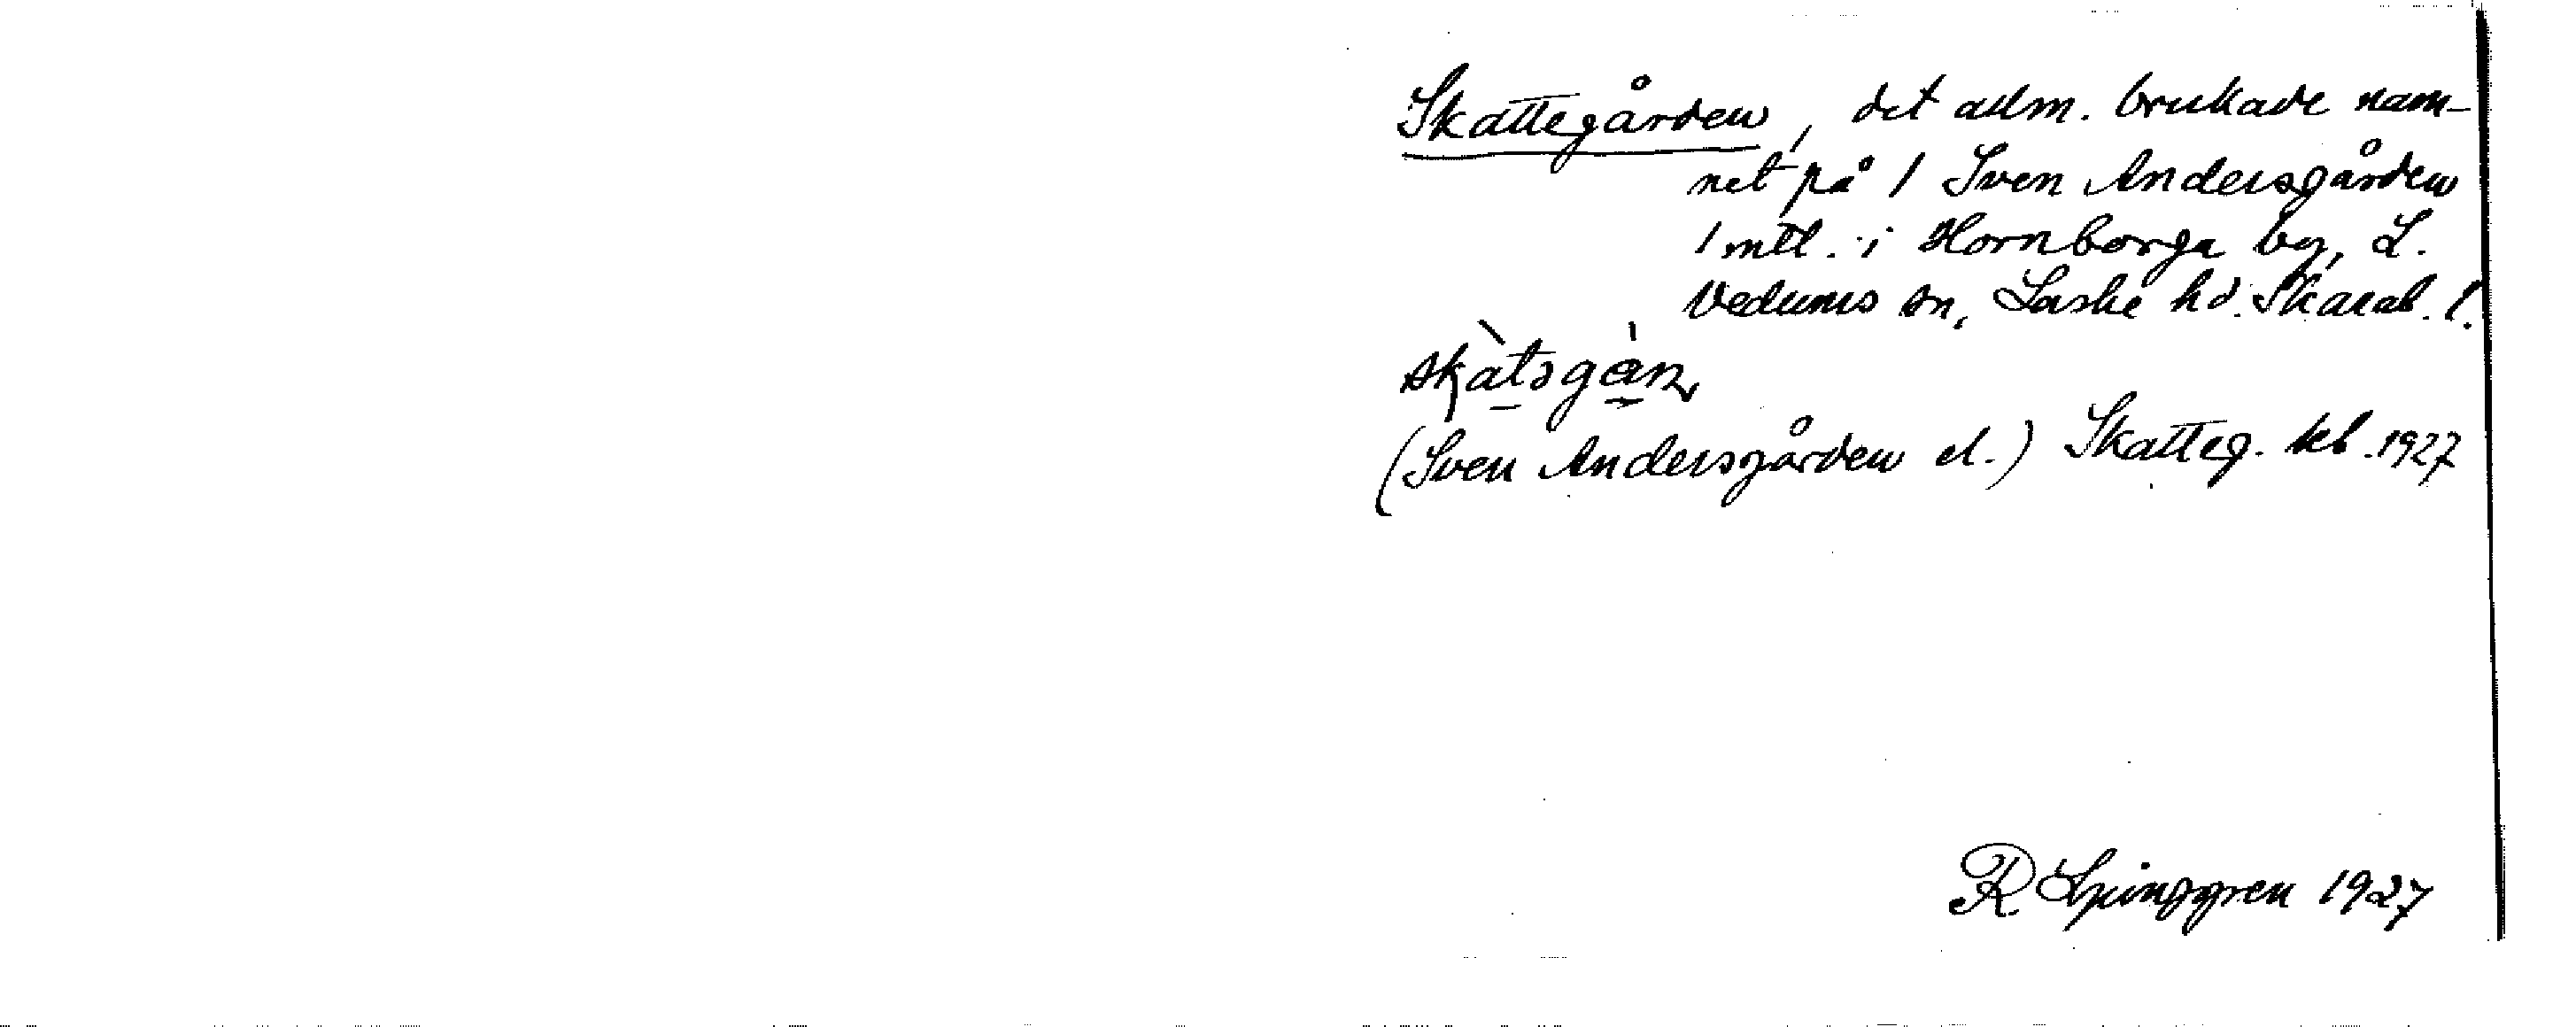 Skattegården, det allm. brukade nam-
net på 1 Sven Andersgården
1 mtl. i Hornborga by, L.
Vedums sn, Laske hd. Skarab. l.
skàtəgàn
(Sven Andersgården el.) Skatteg. kb. 1927
R Ljunggren 1927